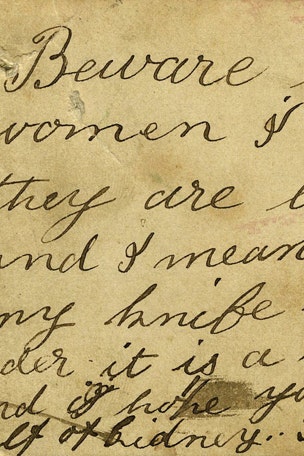 Beware
women I
they are
and I mean
my knife
der it is a
nd I hope yo
lf of kidney..